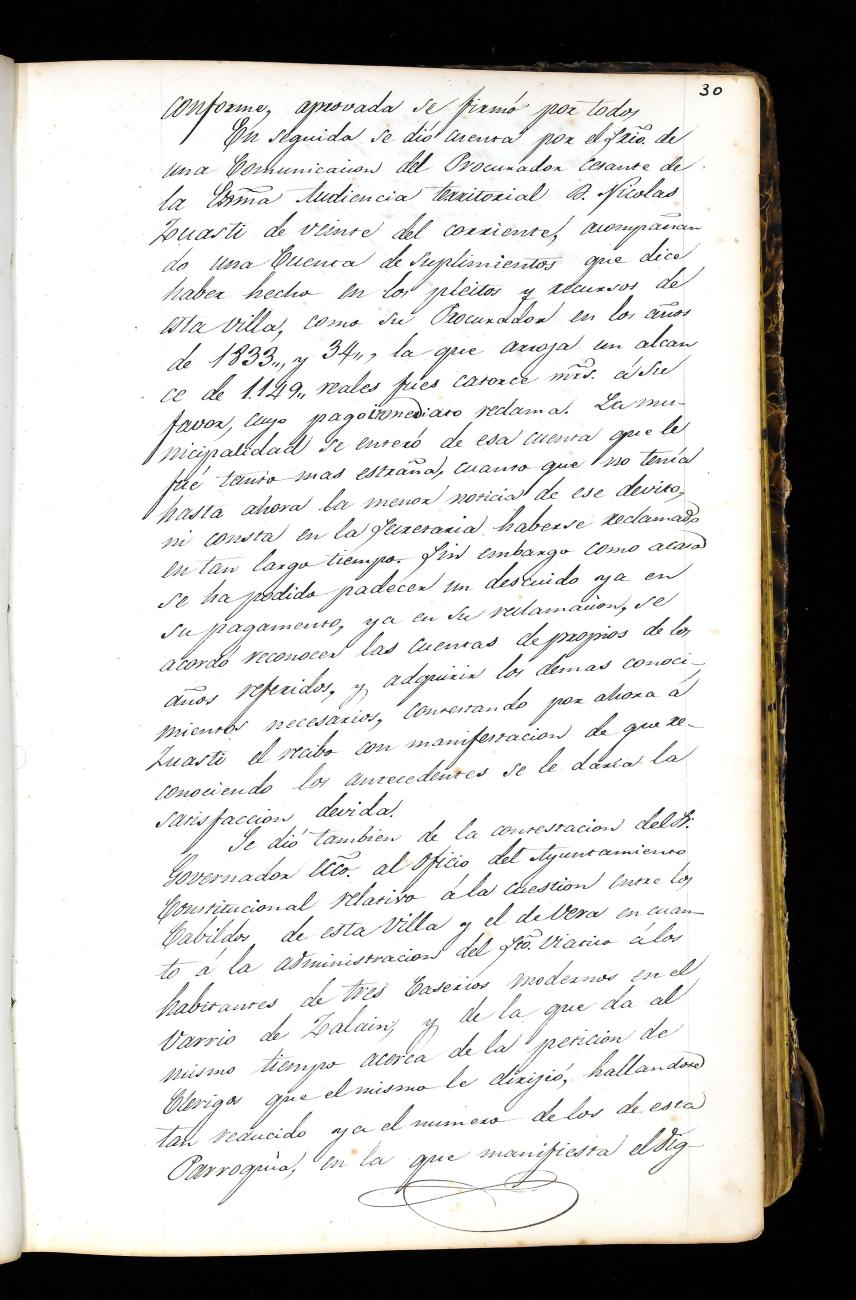 30
conforme, aprovada se firmó por todos
En seguida se dió cuenta por el Srio. de
una Comunicacion del Procurador cesante de
la Exma Audiencia territorial D. Nicolas
Zuasti de veinte del corriente, acompañan
do una Cuenta de suplimientos que dice
haber hecho en los pleitos y recursos de
esta villa, como su Procurador en los años
de 1833,, y 34,,, la que arroja un alcan
ce de 1.149,, reales fues catorce mrs. á su
favor, cuyo pago inmediato reclama. La mu-
nicipalidad se enteró de esa cuenta que le
fué tanto mas estraña, cuanto que no tenía
hasta ahora la menor noticia de ese devito,
ni consta en la Secretaria haberse reclamado
en tan largo tiempo. Sin embargo como acaso
se ha podido padecer un descuido ya en
su pagamento, ya en su reclamacion, se
acordó reconocer las cuentas de propios de los
años referidos, y adquirir los demas conoci-
mientos necesarios, contestando por ahora á
Zuasti el recibo con manifestacion de que re-
conociendo los antecedentes se le daría la
satisfaccion devida.
Se dió tambien de la contestacion del Sr.
Governador Ecco. al oficio del Ayuntamiento
Constitucional relativo á la cuestion entre los
Cabildos de esta Villa y el de Vera en cuan-
to á la administracion del Sto. Viatico á los
habitantes de tres Caserios modernos en el
Varrio de Zalain, y de la que da al
mismo tiempo acerca de la peticion de
Clerigos que el mismo le dirijió, hallandose
tan reducido ya el numero de los de esta
Parroquia, en la que manifiesta el Sig-